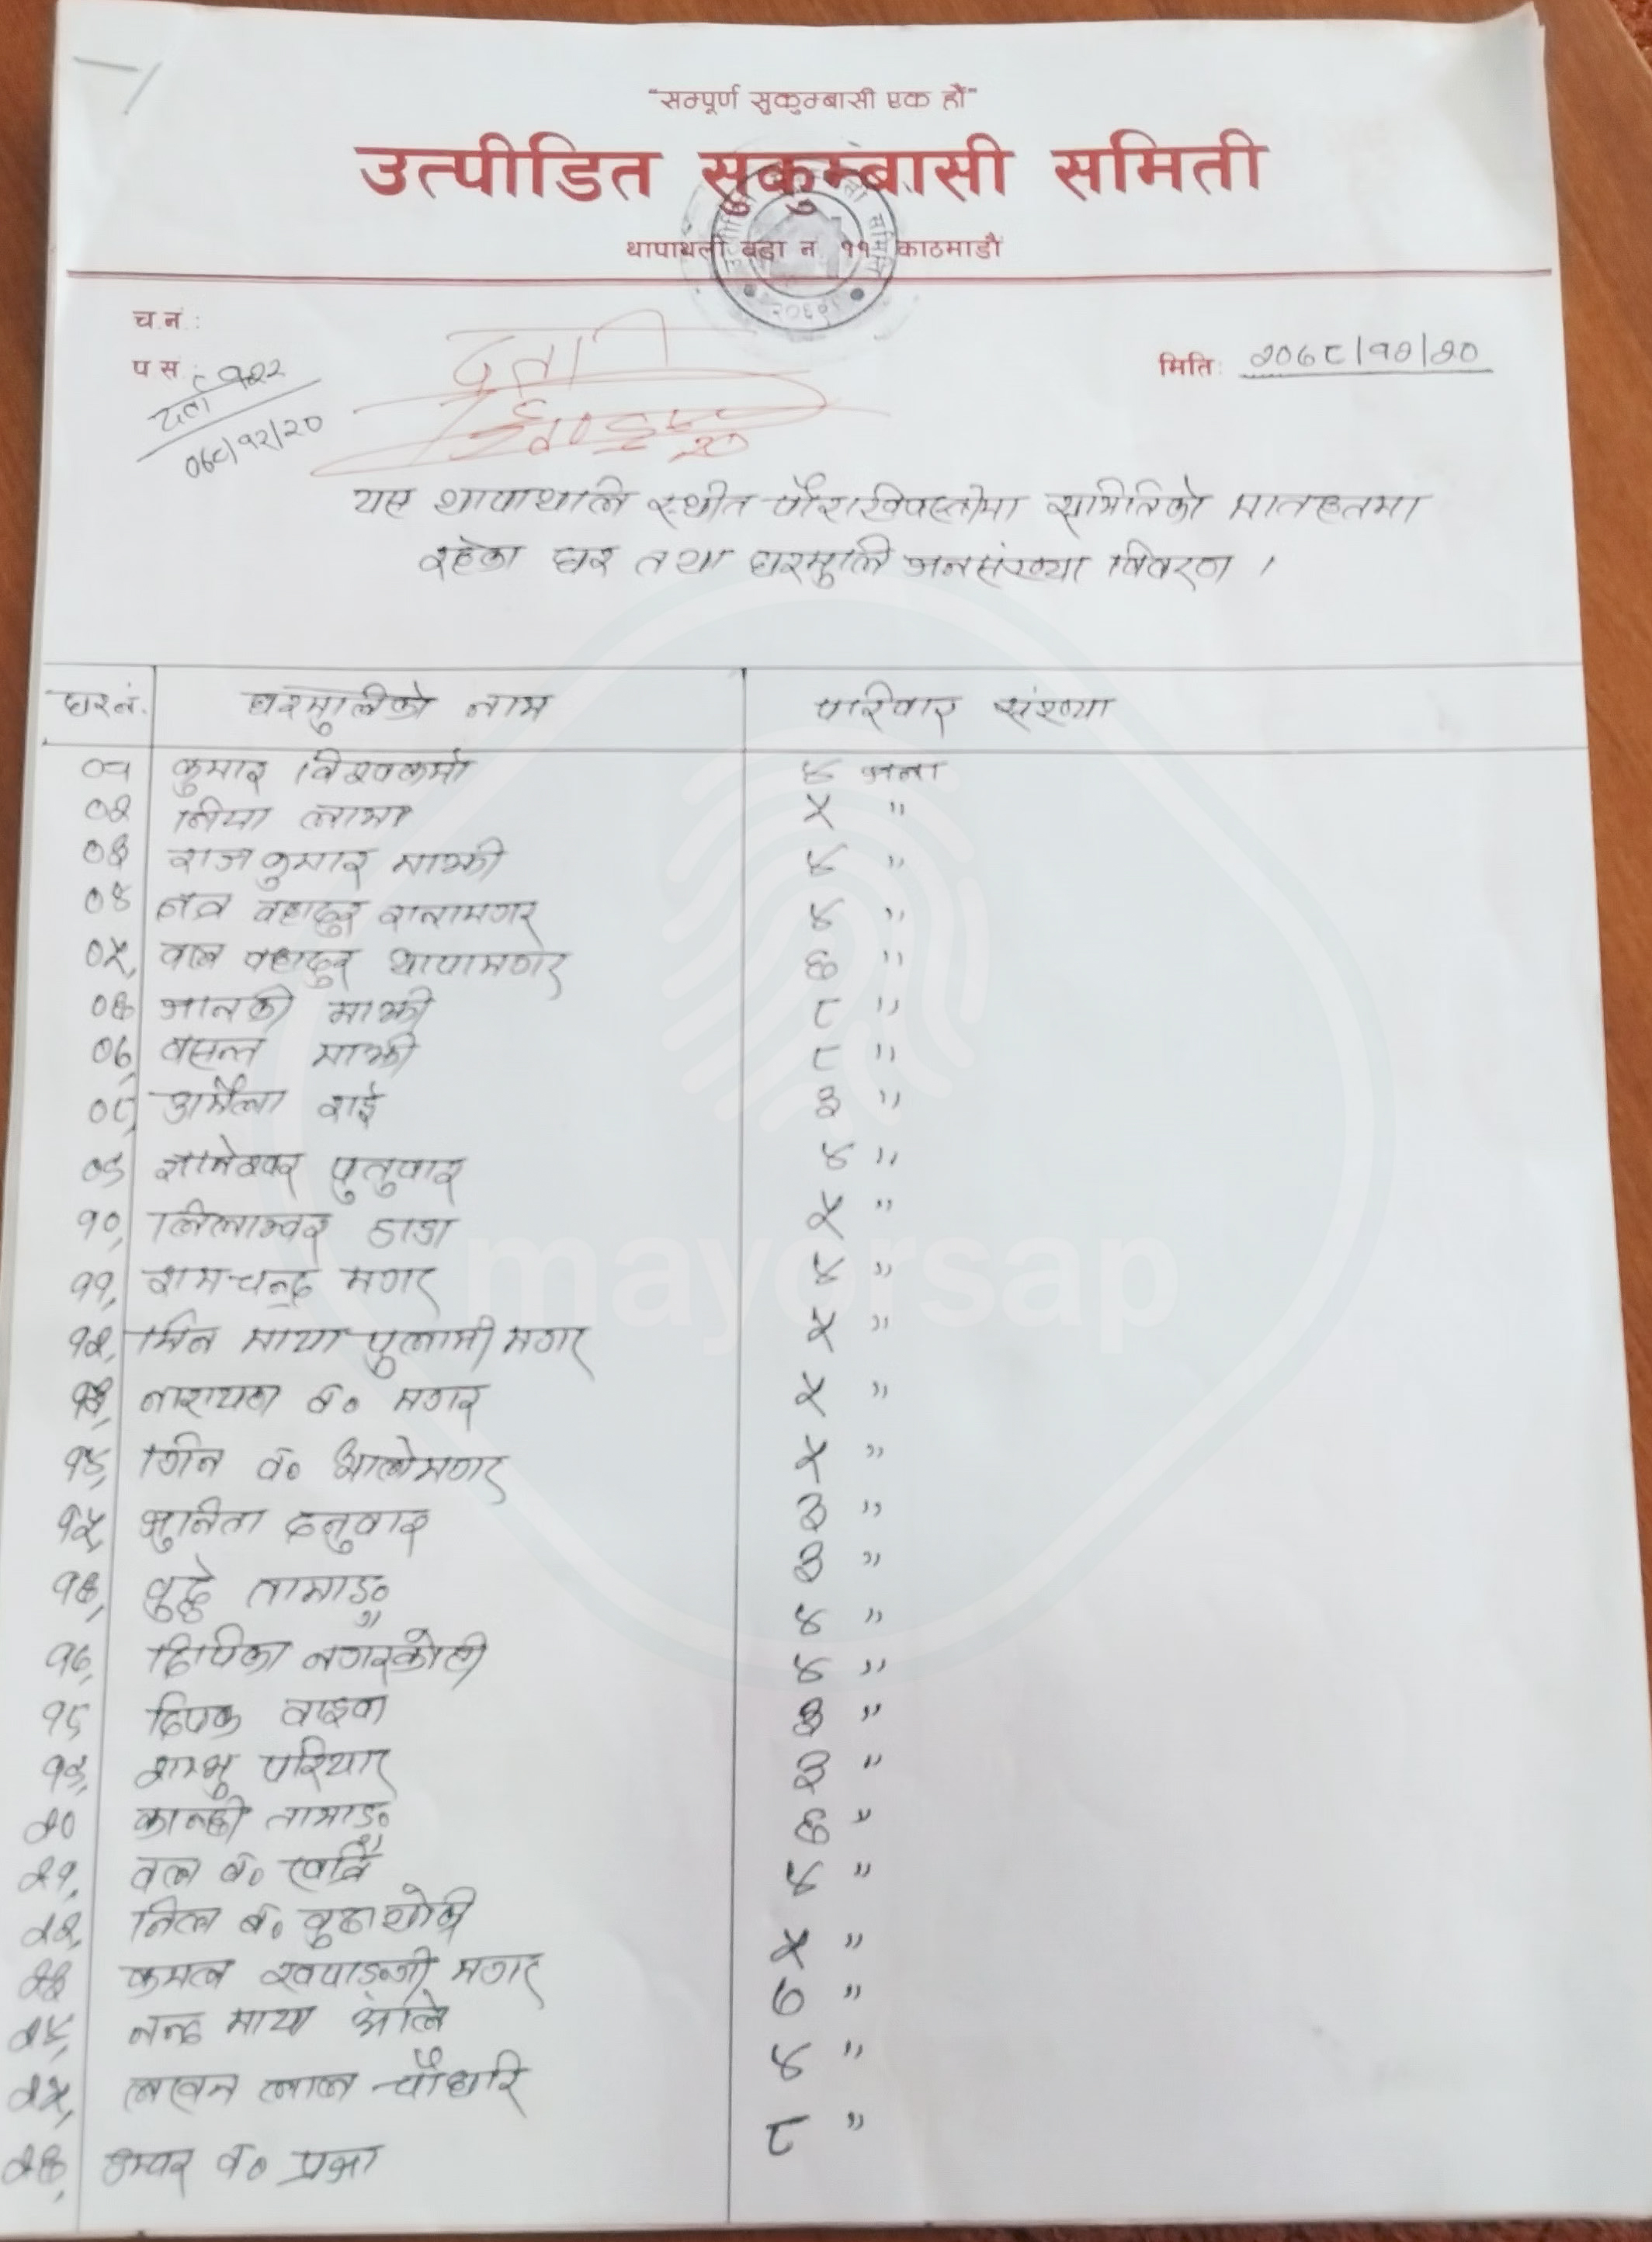 "सम्पूर्ण सुकुम्बासी एक हौं"
उत्पीडित सुकुम्बासी समिती
थापाथली वडा न ११ काठमाडौं
च.न.:
प स.:
दर्ता १२२
०६८/१२/२०
दर्ता
मिति: २०६८/१२/२०
यस थापाथलि स्थीत पौराखिवस्तीमा समितिको मातहतमा
रहेका घर तथा घरमुलि जनसंख्या विवरण ।
घर नं. घरमुलिको नाम परिवार संख्या
०१ कुमार विश्वकर्मा ४ जना
०२ निमा लामा ५ "
०३ राजकुमार माझी ४ "
०४ वहादुर रानामगर ४ "
०५, वहादुर थापामगर ६ "
०६ जानकी माझी ८ "
०७, वसन्त माझी ८ "
०८, राई ३ "
०९ पुतुवार ४ "
१०, लिलाम्वर ठाडा ५ "
११, रामचन्द्र मगर ४ "
१२, मिन माया पुलामी मगर ५ "
१३, नारायण व० मगर ५ "
१४, व० आलेमगर ५ "
१५, सुनिता दनुवार ३ "
१६, वुद्धे तामाङ ३ "
४ "
१७, दिपिका नगरकोटी ४ "
१८ दिपक ३ "
१९, शम्भु परियार ३ "
२० कान्छी तामाङ ६ "
२१, वल व० ४ "
२२, व० वुढाथोकी ५ "
२३ कमल मगर ७ "
२४, नन्द माया ४ "
२५, लखन लाल चौधरि ८ "
२६, डम्वर व० प्रजा
mayorsap